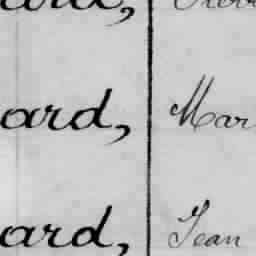 ard, Mar
ard, Jean